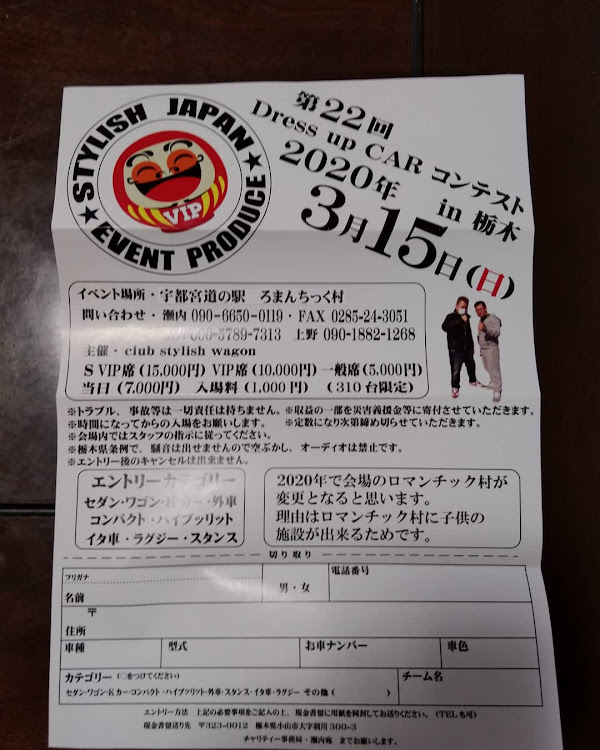 STYLISH JAPAN
VIP
EVENT PRODUCE
第22回
Dress up CAR コンテスト
2020年 in 栃木
3月15日(日)
イベント場所・宇都宮道の駅 ろまんちっく村
問い合わせ・瀬内 090-6650-0119・FAX 0285-24-3051
090-5789-7313 上野 090-1882-1268
主催・club stylish wagon
S VIP席(15,000円) VIP席(10,000円) 一般席(5,000円)
当日(7,000円) 入場料(1,000円) (310台限定)
※トラブル、事故等は一切責任は持ちません。※収益の一部を災害義援金等に寄付させていただきます。
※時間になってからの入場をお願いします。 ※定数になり次第締め切らせていただきます。
※会場内ではスタッフの指示に従ってください。
※栃木県条例で、騒音は出せませんので空ぶかし、オーディオは禁止です。
※エントリー後のキャンセルは出来ません。
エントリーカテゴリー
セダン・ワゴン・Kカー・外車
コンパクト・ハイブッリット
イタ車・ラグジー・スタンス
2020年で会場のロマンチック村が
変更となると思います。
理由はロマンチック村に子供の
施設が出来るためです。
切り取り
フリガナ
名前
男・女
電話番号
〒
住所
車種
型式
お車ナンバー
車色
カテゴリー (○をつけてください)
セダン・ワゴン・Kカー・コンパクト・ハイブッリット・外車・スタンス・イタ車・ラグジー その他( )
チーム名
エントリー方法 上記の必要事項をご記入の上、現金書留に用紙を同封してお送りください。(TELも可)
現金書留送り先 〒323-0012 栃木県小山市大字羽川300-3
チャリティー事務局・瀬内宛 までお願いします。